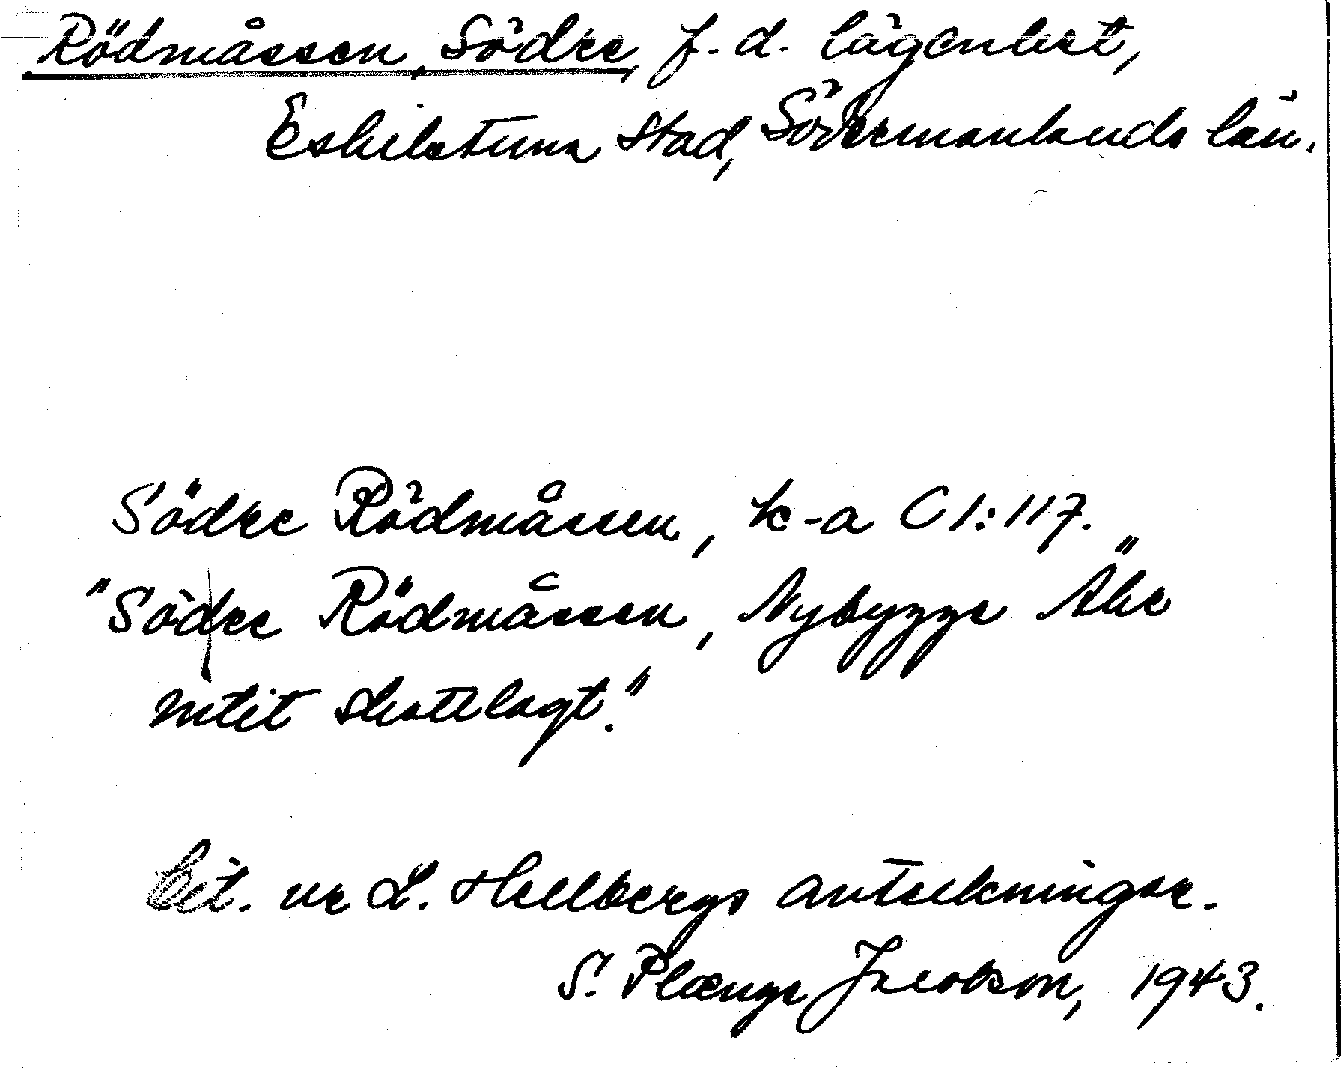 Rödmåssen, Södre, f. d. lägenhet,
Eskilstuna stad, Södermanlands län.
Södre Rödmåssen, k-a C I:117.
"Södre Rödmåssen, Nybygge Åke
nitit skattlagt."
Cit. ur L. Hellbergs anteckningar.
S. Plænge Jacobson, 1943.